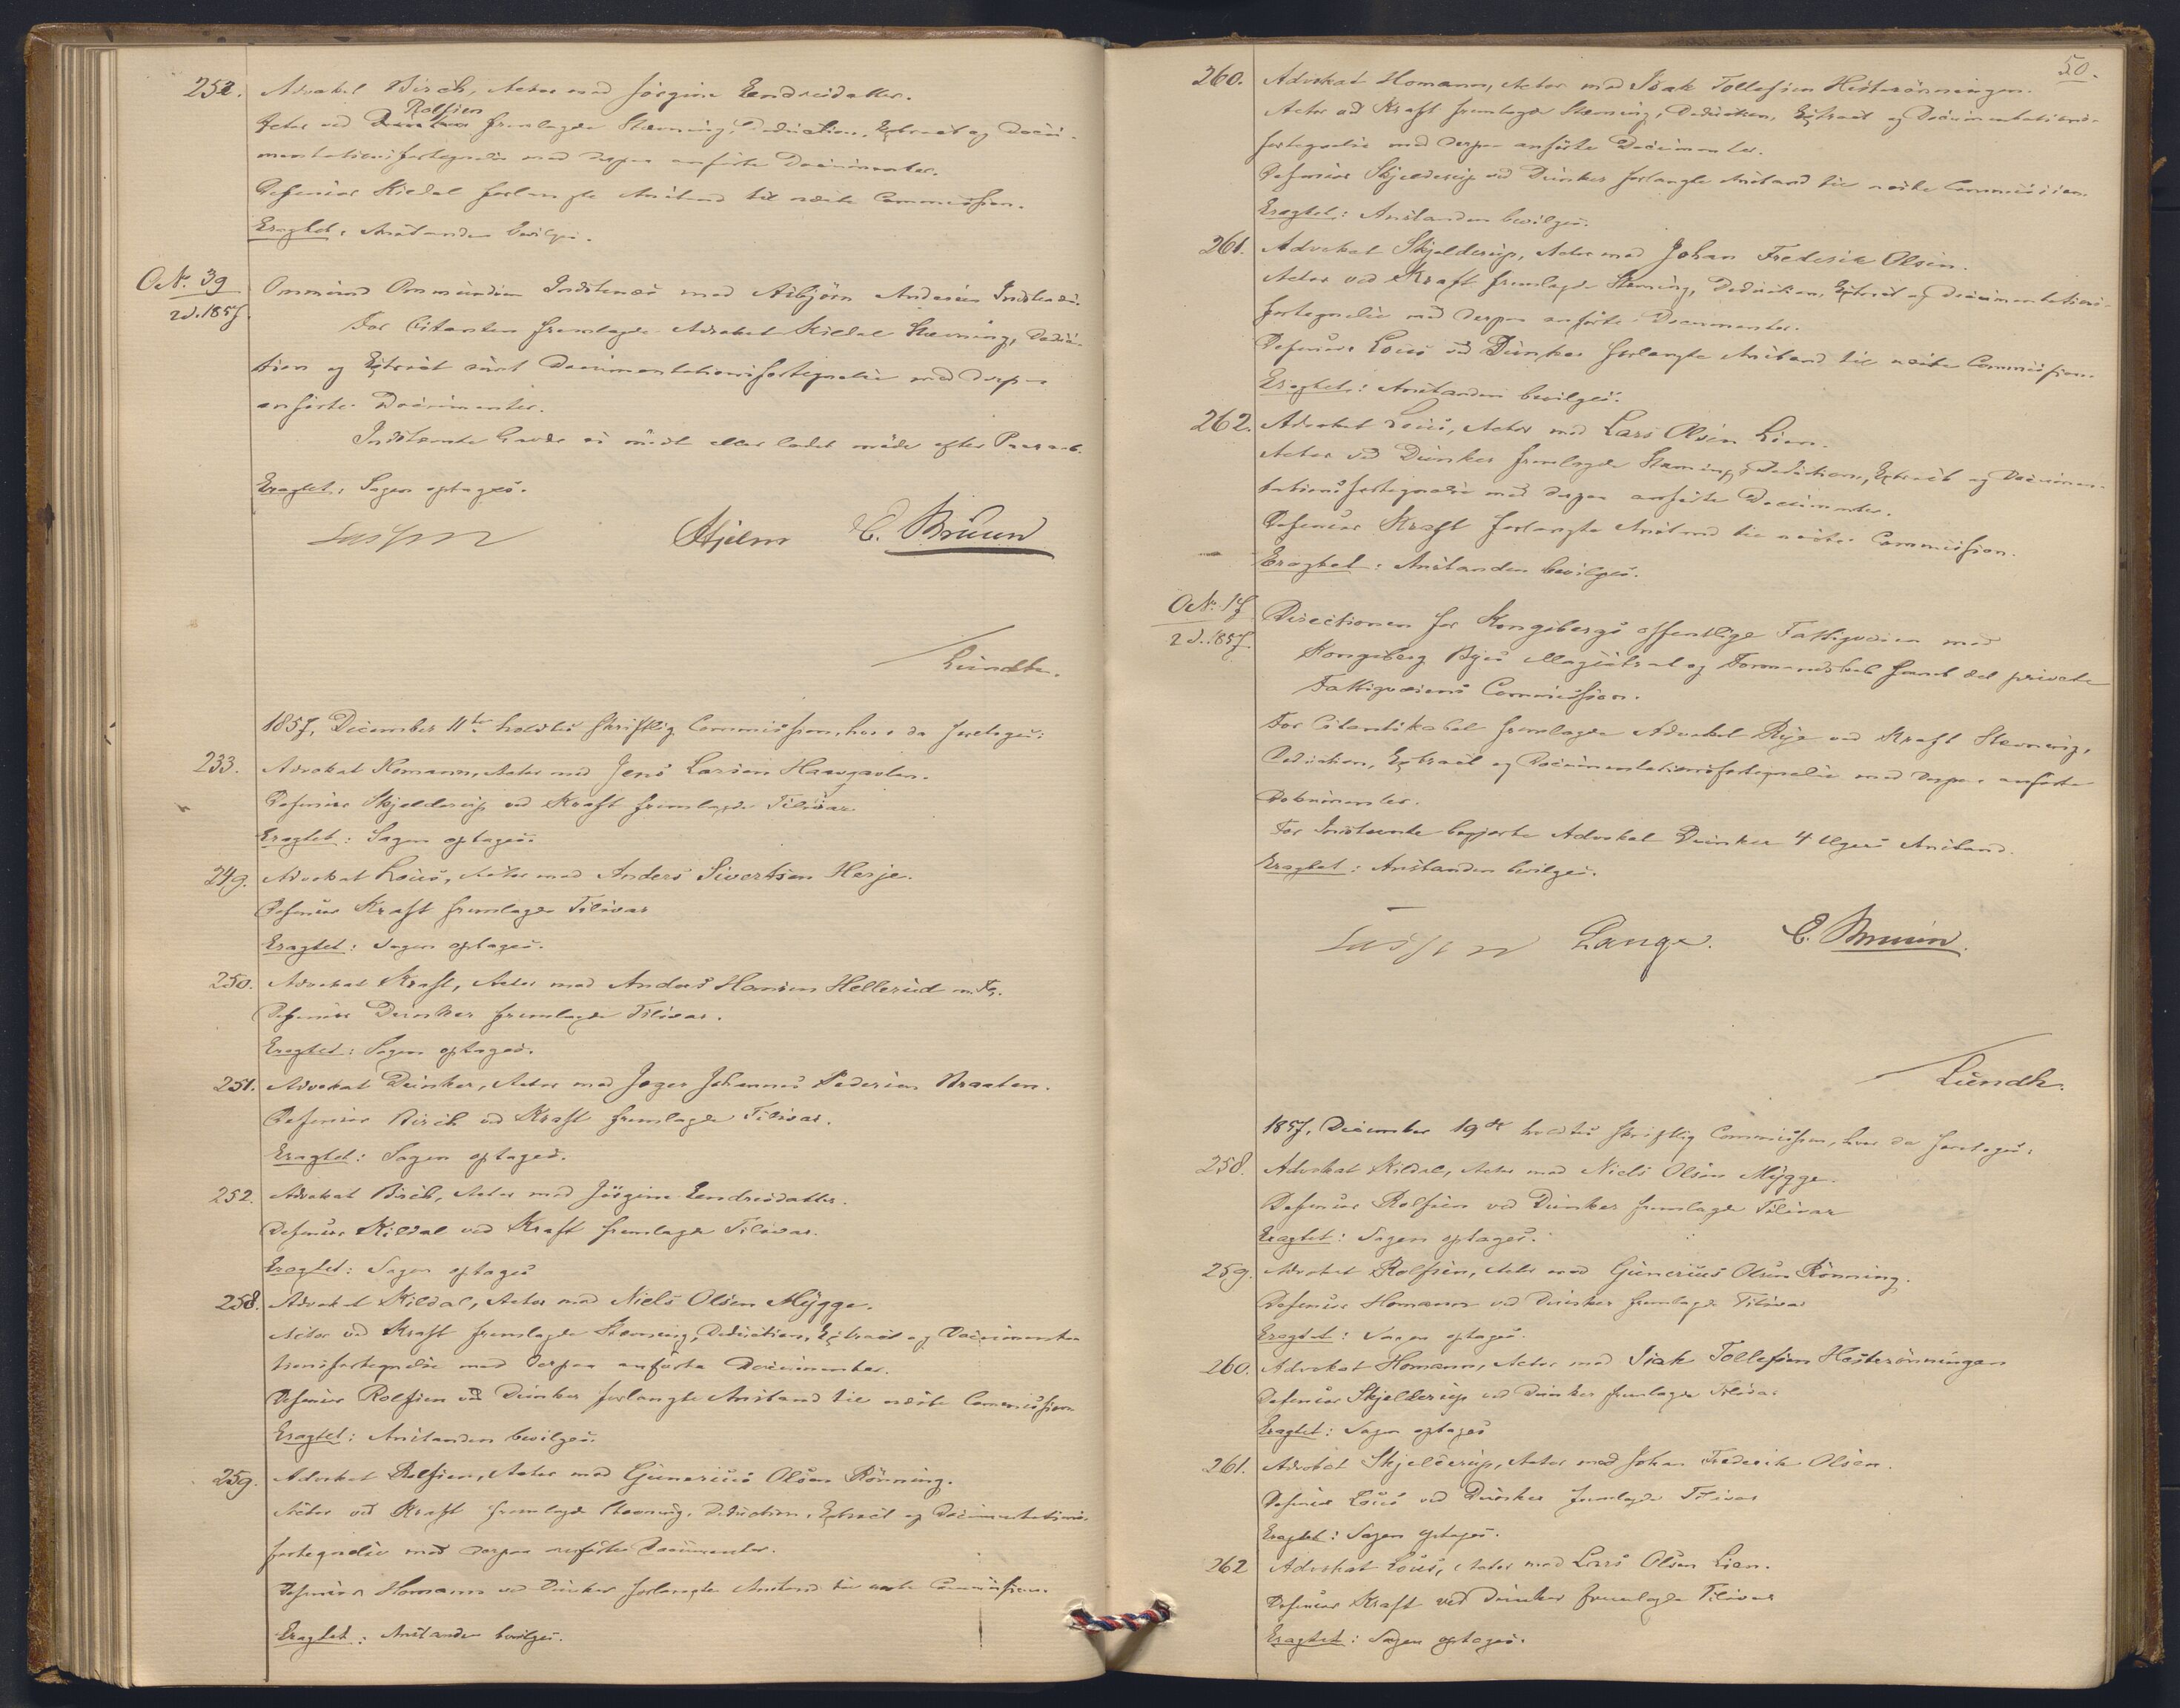 252. Advokat Birch, Actor mod Jørgine Eendreisdatter.
Rolfsen
Actor ved fremlagde Stævning, Deduction, Extract og Docu-
mentationsfortegnelse med derpaa anførte Documenter.
Defensor Kildal forlangte Anstand til næste Commission.
Eragtet: Anstanden bevilges.
No. 39
2d. 1857.
Ommund Ommundsen Indstenæs mod Asbjørn Andersen
For Citanten fremlagde Advokat Kildal Stævning, Deduc-
tion og Extract samt Documentationsfortegnelse med derpaa
anførte Documenter.
Indstævnte havde ei mødt eller ladet møde efter Paaraab.
Eragtet: Sagen optages.
Lasson Hjelm C. Bruun
Lundh.
1857, December 11te holdtes skriftlig Commission, hvor da foretoges:
233. Advokat Homann, Actor mod Jens Larsen Haavgavlen.
Defensor Skjelderup ved Kraft fremlagde Tilsvar.
Eragtet: Sagen optages.
249. Advokat Lous, Actor mod Anders Sivertsen Herje.
Defensor Kraft fremlagde Tilsvar
Eragtet: Sagen optages.
250. Advokat Kraft, Actor mod Anders Hansen Hellerud m. Fl.
Defensor Dunker fremlagde Tilsvar.
Eragtet: Sagen optages.
251. Advokat Dunker, Actor mod Johannes Pedersen Braaten.
Defensor Birch ved Kraft fremlagde Tilsvar.
Eragtet: Sagen optages.
252. Advokat Birch, Actor mod Jørgine Eendreisdatter.
Defensor Kildal ved Kraft fremlagde Tilsvar.
Eragtet: Sagen optages
258. Advokat Kildal, Actor mod Niels Olsen Mygge.
Actor ved Kraft fremlagde Stævning, Deduction, Extract og Documenta
tionsfortegnelse med derpaa anførte Documenter.
Defensor Rolfsen ved Dunker forlangte Anstand til næste Commission
Eragtet: Anstanden bevilges.
259. Advokat Rolfsen, Actor mod Gunerius Olsen Rönning.
Actor ved Kraft fremlagde Stævning, Deduction, Extract og Documentations-
fortegnelse med derpaa anførte Documenter.
Defensor Homann ved Dunker forlangte Anstand til næste Commission.
Eragtet: Anstanden bevilges.
50.
260. Advokat Homann, Actor mod Isak Tollefsen Hesterönningen.
Actor ved Kraft fremlagde Stævning, Deduction, Extract og Documentations-
fortegnelse med derpaa anførte Documenter.
Defensor Skjelderup ved Dunker forlangte Anstand til næste Commission.
Eragtet: Anstanden bevilges.
261. Advokat Skjelderup, Actor mod Johan Frederik Olsen.
Actor ved Kraft fremlagde Stævning, Deduction, Extract og Documentations-
fortegnelse med derpaa anførte Documenter.
Defensor Lous ved Dunker forlangte Anstand til næste Commission.
Eragtet: Anstanden bevilges.
262. Advokat Lous, Actor mod Lars Olsen Lien.
Actor ved Dunker fremlagde Stævning, Deduction, Extract og Documen-
tationsfortegnelse med derpaa anførte Documenter.
Defensor Kraft forlangte Anstand til næste Commission.
Eragtet: Anstanden bevilges.
No. 17
2d. 1857.
Directionen for Kongsbergs offentlige Fattigvæsen mod
Kongsberg Byes Magistrat og Formandskab samt det private
Fattigvæsens Commission.
For Citantskabet fremlagde Advokat Rye ved Kraft Stævning,
Deduction, Extract og Documentationsfortegnelse med derpaa anførte
Dokumenter.
For Indstævnte begjærte Advokat Dunker 4 Ugers Anstand.
Eragtet: Anstanden bevilges.
Lasson Lange. C. Bruun.
Lundh.
1857, December 19de holdtes skriftlig Commission, hvor da foretoges:
258. Advokat Kildal, Actor mod Niels Olsen Mygge.
Defensor Rolfsen ved Dunker fremlagde Tilsvar
Eragtet: Sagen optages.
259. Advokat Rolfsen, Actor mod Gunerius Olsen Rönning.
Defensor Homann ved Dunker fremlagde Tilsvar
Eragtet: Sagen optages.
260. Advokat Homann, Actor mod Isak Tollefsen Hesterönningen
Defensor Skjelderup ved Dunker fremlagde Tilsvar
Eragtet: Sagen optages
261. Advokat Skjelderup, Actor mod Johan Frederik Olsen.
Defensor Lous ved Dunker fremlagde Tilsvar
Eragtet: Sagen optages.
262 Advokat Lous, Actor mod Lars Olsen Lien.
Defensor Kraft ved Dunker fremlagde Tilsvar
Eragtet: Sagen optages.